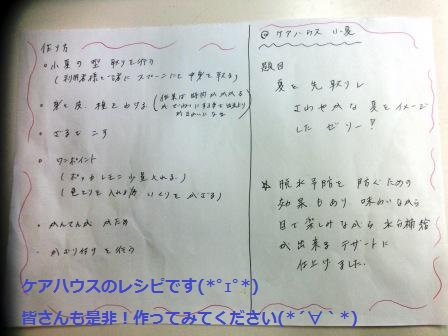 作り方
・小夏の型取りを行う
(利用者様と一緒にスプーンにて中身を取る)
・実と皮、種をわける
・ざるでこす
・ワンポイント
(ポッカレモン少量入れる)
・かんてんが かたまる
・かざり作りを行う
@ケアハウス 小夏
題目
夏を先取りし
さわやかな夏をイメージ
したゼリー?
※ 脱水予防を防ぐための
効果もあり 味わいながら
目で楽しみながら水分補給
が出来るデザートに
仕上げました。
ケアハウスのレシピです(*°ェ°*)
皆さんも是非!作ってみてください(*´∀`*)